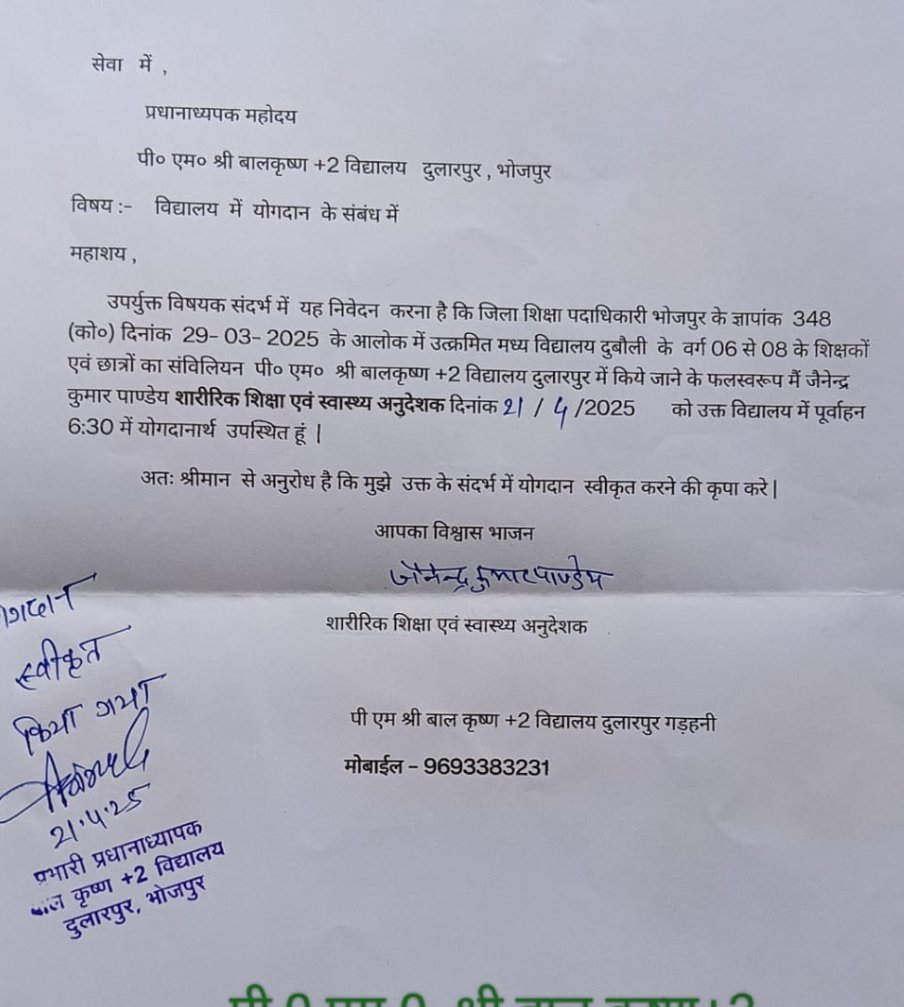 सेवा में ,
प्रधानाध्यपक महोदय
पी० एम० श्री बालकृष्ण +2 विद्यालय दुलारपुर , भोजपुर
विषय :- विद्यालय में योगदान के संबंध में
महाशय ,
उपर्युक्त विषयक संदर्भ में यह निवेदन करना है कि जिला शिक्षा पदाधिकारी भोजपुर के ज्ञापांक 348
(को०) दिनांक 29- 03- 2025 के आलोक में उत्क्रमित मध्य विद्यालय दुबौली के वर्ग 06 से 08 के शिक्षकों
एवं छात्रों का संविलियन पी० एम० श्री बालकृष्ण +2 विद्यालय दुलारपुर में किये जाने के फलस्वरूप मैं जैनेन्द्र
कुमार पाण्डेय शारीरिक शिक्षा एवं स्वास्थ्य अनुदेशक दिनांक 21 / 4 /2025 को उक्त विद्यालय में पूर्वाहन
6:30 में योगदानार्थ उपस्थित हूं |
अतः श्रीमान से अनुरोध है कि मुझे उक्त के संदर्भ में योगदान स्वीकृत करने की कृपा करे |
आपका विश्वास भाजन
जैनेन्द्र कुमार पाण्डेय
शारीरिक शिक्षा एवं स्वास्थ्य अनुदेशक
पी एम श्री बाल कृष्ण +2 विद्यालय दुलारपुर गड़हनी
मोबाईल – 9693383231
स्वीकृत
किया गया
21.4.25
प्रभारी प्रधानाध्यापक
कृष्ण +2 विद्यालय
दुलारपुर, भोजपुर